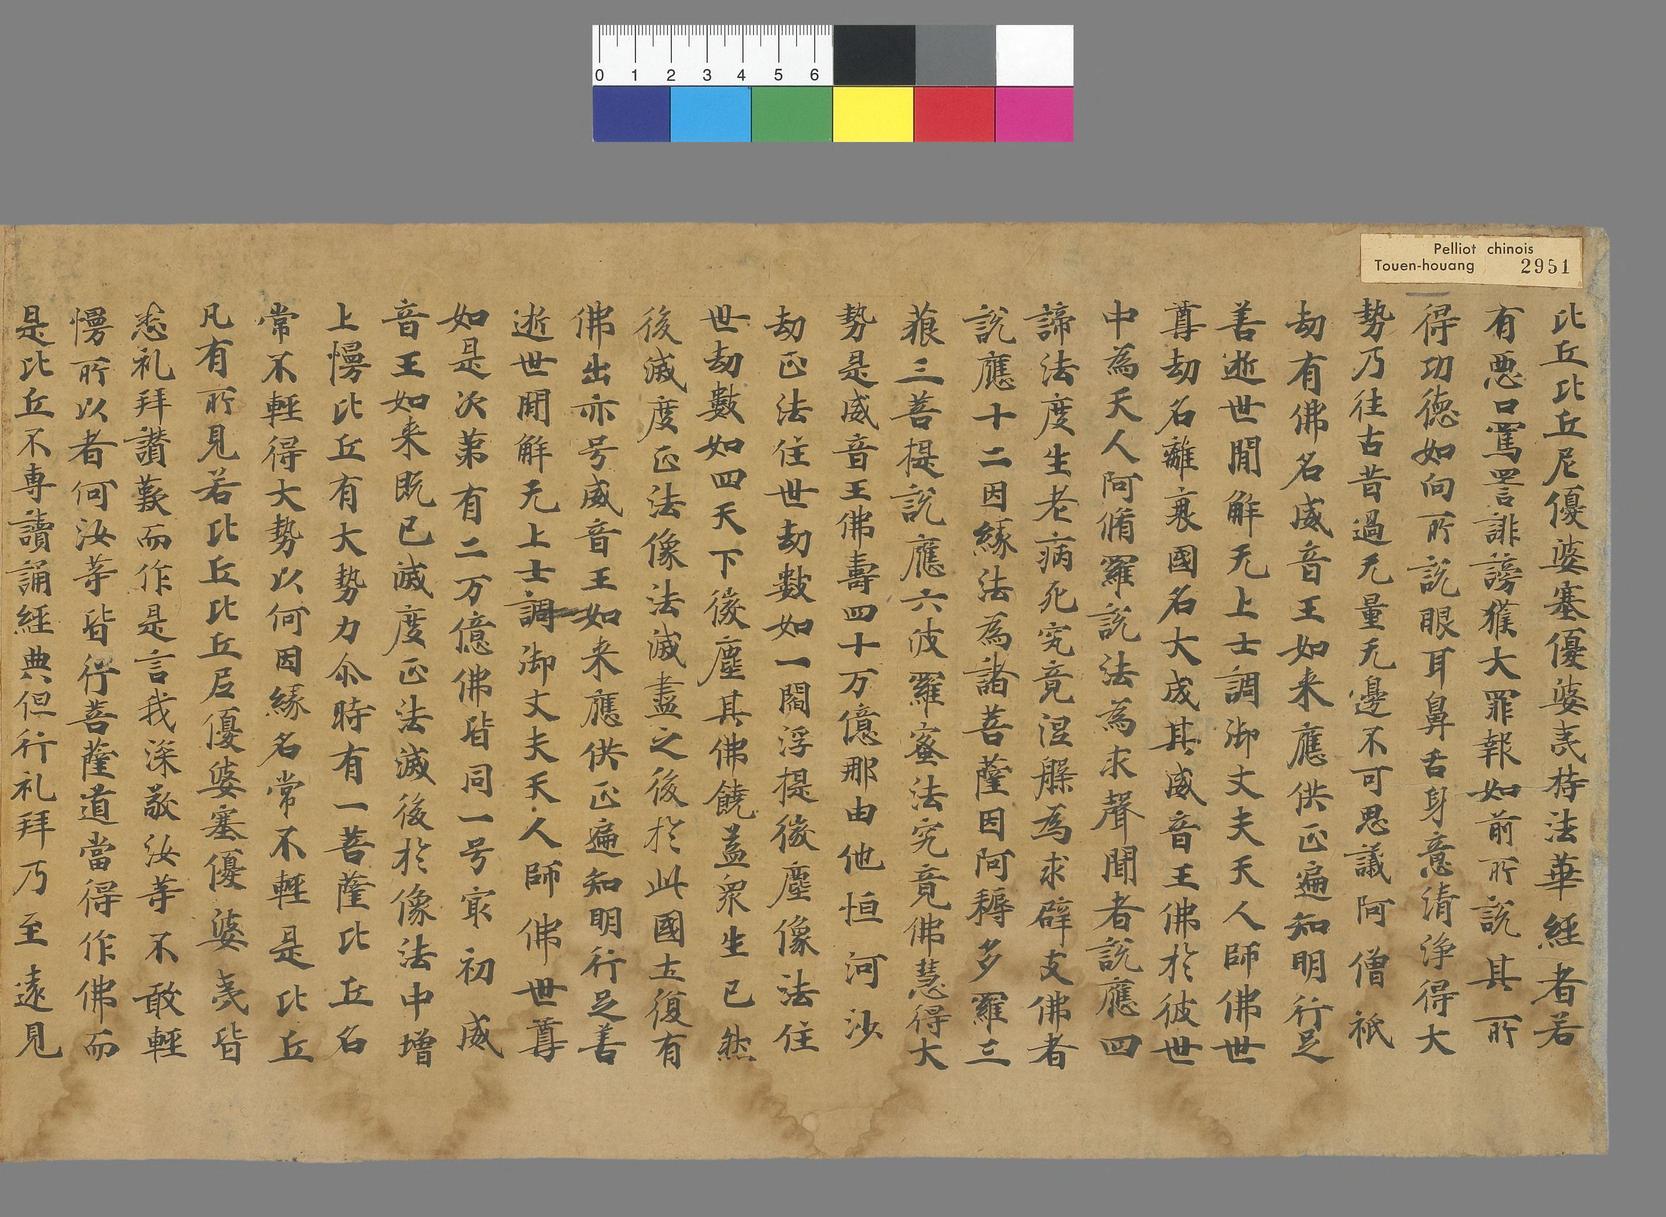 0 1 2 3 4 5 6
Pelliot chinois
Touen-houang 2951
比丘比丘尼優婆塞優婆夷持法華經者若
有惡口罵詈誹謗獲大罪報如前所說其所
得功德如向所說眼耳鼻舌身意清淨得大
勢乃往古昔過无量无邊不可思議阿僧祇
劫有佛名威音王如来應供正遍知明行足
善逝世間解无上士調御丈夫天人師佛世
尊劫名離衰國名大成其威音王佛於彼世
中為天人阿脩羅說法為求聲聞者說應四
諦法度生老病死究竟涅槃為求辟支佛者
說應十二因緣法為諸菩薩因阿耨多羅三
藐三菩提說應六波羅蜜法究竟佛慧得大
勢是威音王佛壽四十万億那由他恒河沙
劫正法住世劫數如一閻浮提㣲塵像法住
世劫數如四天下㣲塵其佛饒益衆生已然
後滅度正法像法滅盡之後於此國土復有
佛出亦号威音王如来應供正遍知明行足善
逝世間解无上士調御丈夫天人師佛世尊
如是次第有二万億佛皆同一号㝡初威
音王如来既已滅度正法滅後於像法中增
上慢比丘有大勢力尒時有一菩薩比丘名
常不輕得大勢以何因緣名常不輕是比丘
凡有所見若比丘比丘尼優婆塞優婆夷皆
悉礼拜讚歎而作是言我深敬汝等不敢輕
慢所以者何汝等皆行菩薩道當得作佛而
是比丘不專讀誦經典但行礼拜乃至遠見